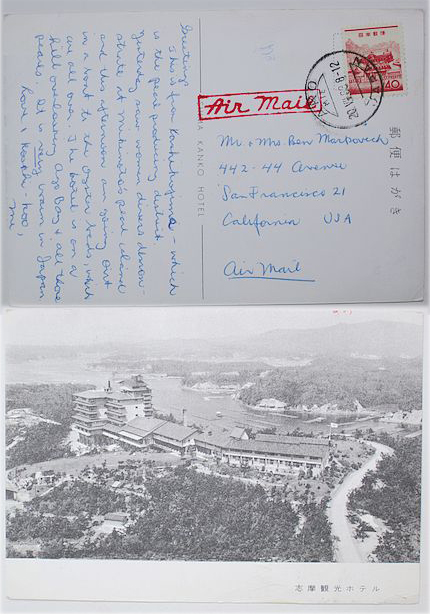 Greetings
This is from Kashikojima - which
is the pearl producing district.
Yesterday saw women divers demon-
strate at Mikimoto's pearl island
and this afternoon am going out
in a boat to the oyster beds, which
are all over. The hotel is on a
hill overlooking Ago Bay & all those
pearls. It is very warm in Japan
Love,
me
Air Mail
KANKO HOTEL
Mr + Mrs. Ben
442-44 Avenue
San Francisco 21
California USA
Air Mail
郵便はがき
日本郵便
40
JAPAN
志摩観光ホテル